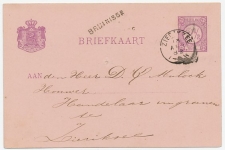 BRUINISSE
BRIEFKAART
ZIERIKZEE
AAN den Heer D. C. Mulock
Houwer
Handelaar in granen
te
Zierikzee